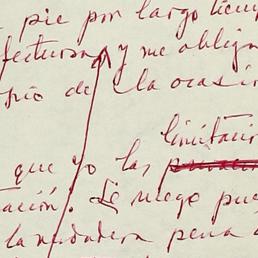 pie por largo tiem
fectura y me oblig
pio de la ocasi
limitaci
que yo las
tación. Le ruego pue
la verdadera pena